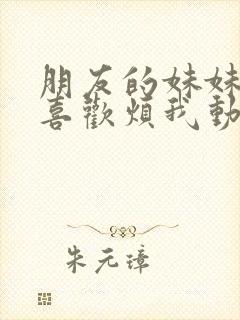 朋友的妹妹
喜歡煩我動
朱元璋